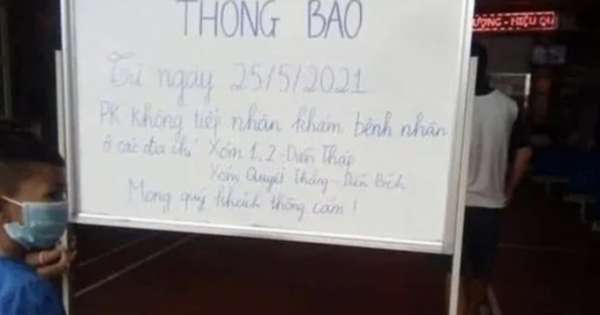 THÔNG BÁO
ƯỢNG - HIỆU QU
Từ ngày 25/5/2021
PK Không tiếp nhận khám bệnh nhân
ở các địa chỉ Xóm 1, 2 - Diễn Tháp
Xóm Quyết Thắng - Diễn Bích
Mong quý khách thông cảm!